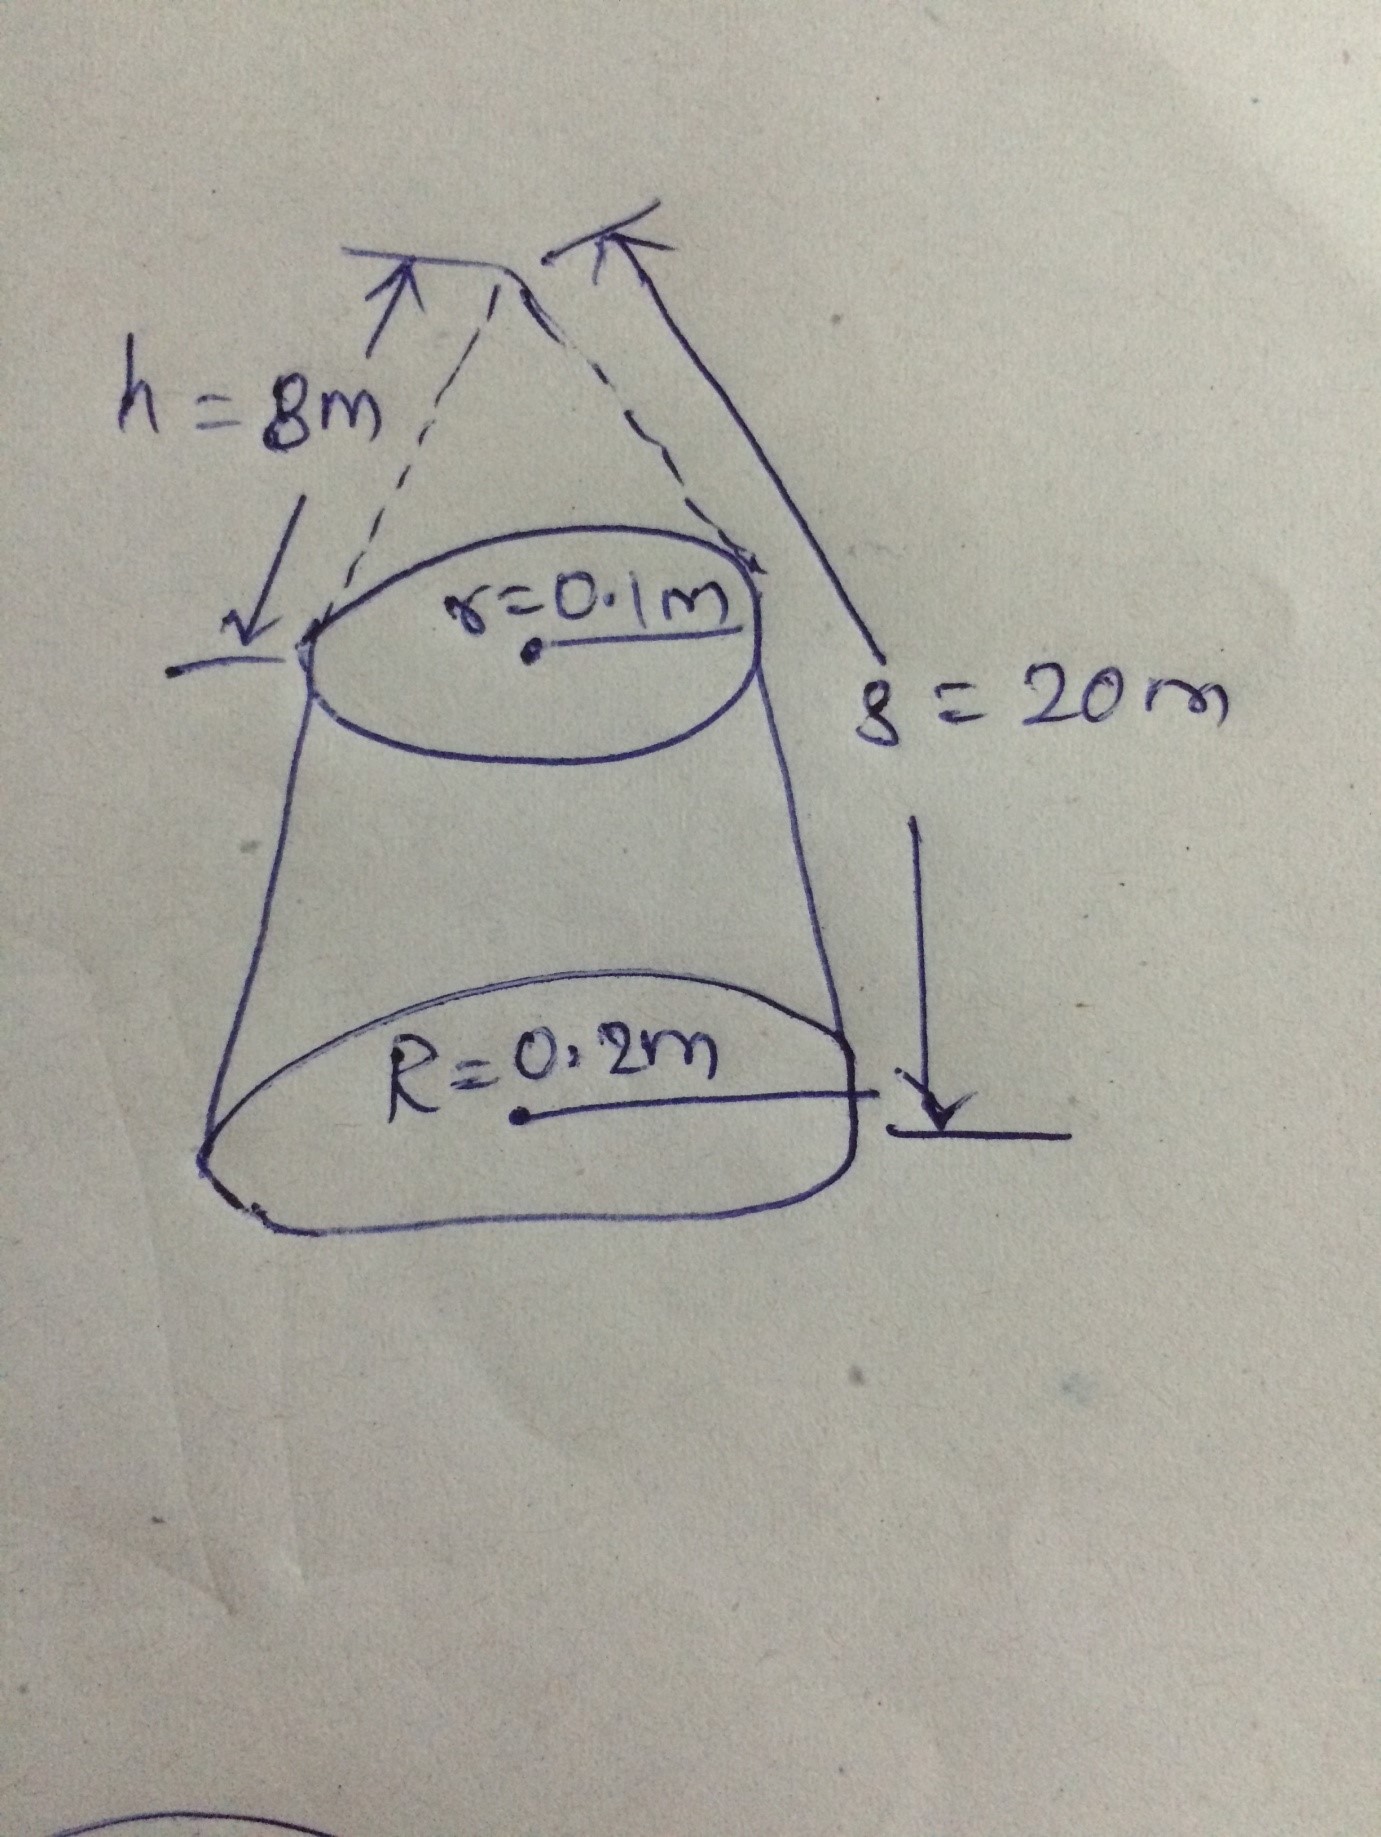 h = 8m
r=0.1m
s = 20m
R=0.2m